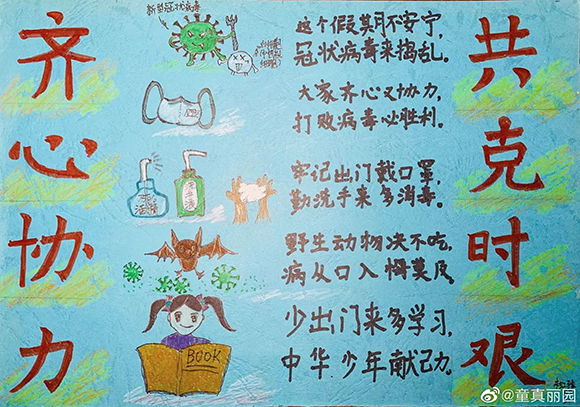 齐心协力
新型冠状病毒
这个假期不安宁,
冠状病毒来捣乱。
大家齐心又协力,
打败病毒必胜利。
牢记出门戴口罩,
勤洗手来多消毒。
洗手液
野生动物决不吃,
病从口入悔莫及。
少出门来多学习,
中华少年献己力。
BOOK
共克时艰
@童真丽园